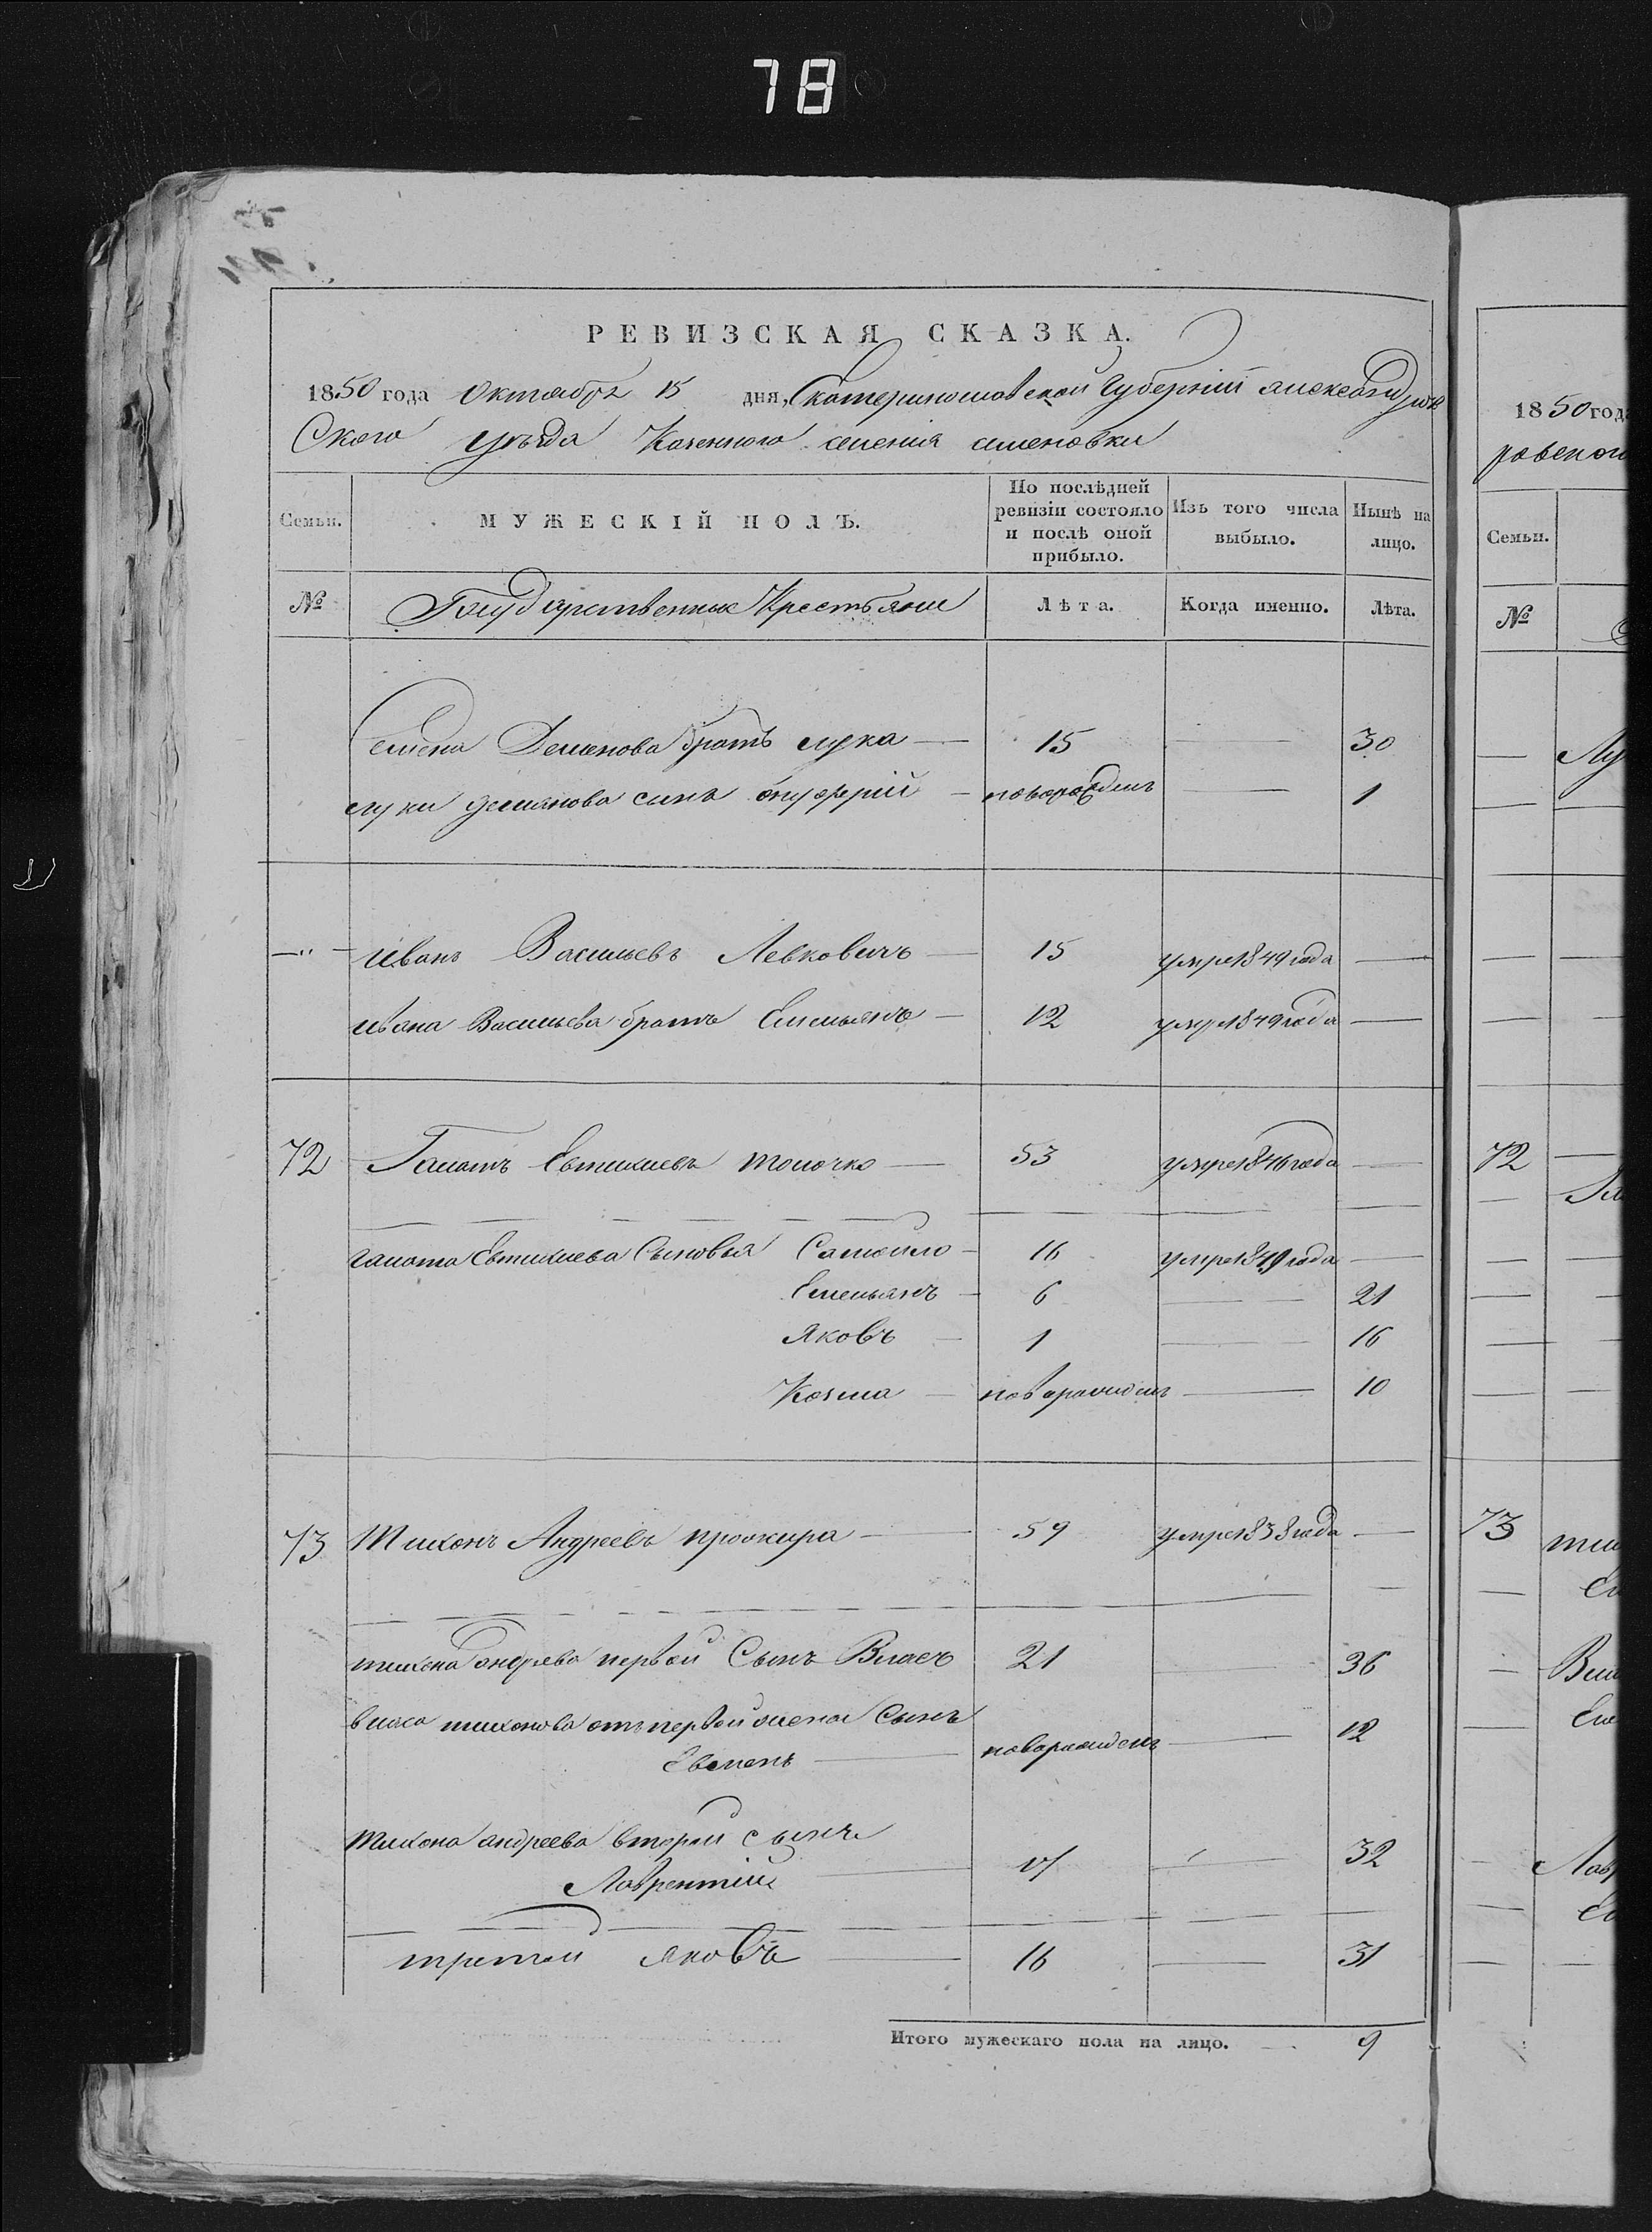 78
РЕВИЗСКАЯ СКАЗКА.
1850 года Октября 15 дня, Екатеринославской Губерніи Александров
Ского уѣзда Казенного селенія семеновки
Семьи. МУЖЕСКІЙ ПОЛЪ. По послѣдней ревизіи состояло и послѣ оной прибыло. Изъ того числа выбыло. Нынѣ на лицо.
№ Государственные Крестьяне Лѣта. Когда именно. Лѣта.
Семена Демянова братъ лука — 15 — 30
луки демянова сынъ онуфрій — новорожденъ — 1
—"— Иванъ Васильевъ Левковичъ — 15 умре 1849 года —
ивана Васильева братъ Емельянъ — 12 умре 1849 года —
72 Галатъ Евтихиевъ толочко — 53 умре 1846 года —
галата Евтихиева Сыновья Самойло — 16 умре 1849 года —
Емельянъ — 6 — 21
Яковъ — 1 — 16
Козма — новорожденъ — 10
73 Тихонъ Андреевъ прожира — 59 умре 1838 года —
тихона андреева первой Сынъ Власъ 21 — 36
власа тихонова отъ первой жены Сынъ
Евменъ — новорожденъ — 12
Тихона андреева второй сынъ
Лаврентій — 17 — 32
третий яковъ — 16 — 31
Итого мужескаго пола на лицо. — 9
1850 год
ровского
Семьи.
№
72
73